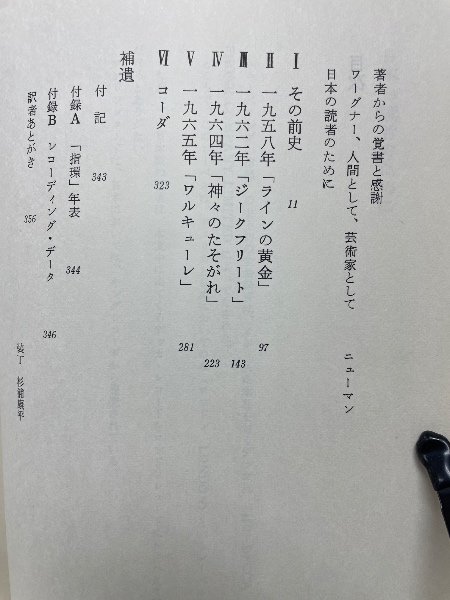 著者からの覚書と感謝
ワーグナー、人間として、芸術家として ニューマン
日本の読者のために
Ⅰ その前史 11
Ⅱ 一九五八年「ラインの黄金」 97
Ⅲ 一九六二年「ジークフリート」 143
Ⅳ 一九六四年「神々のたそがれ」 223
Ⅴ 一九六五年「ワルキューレ」 281
Ⅵ コーダ 323
補遺
付記 343
付録A 「指環」年表 344
付録B レコーディング・データ 346
訳者あとがき 356
装丁 杉浦康平